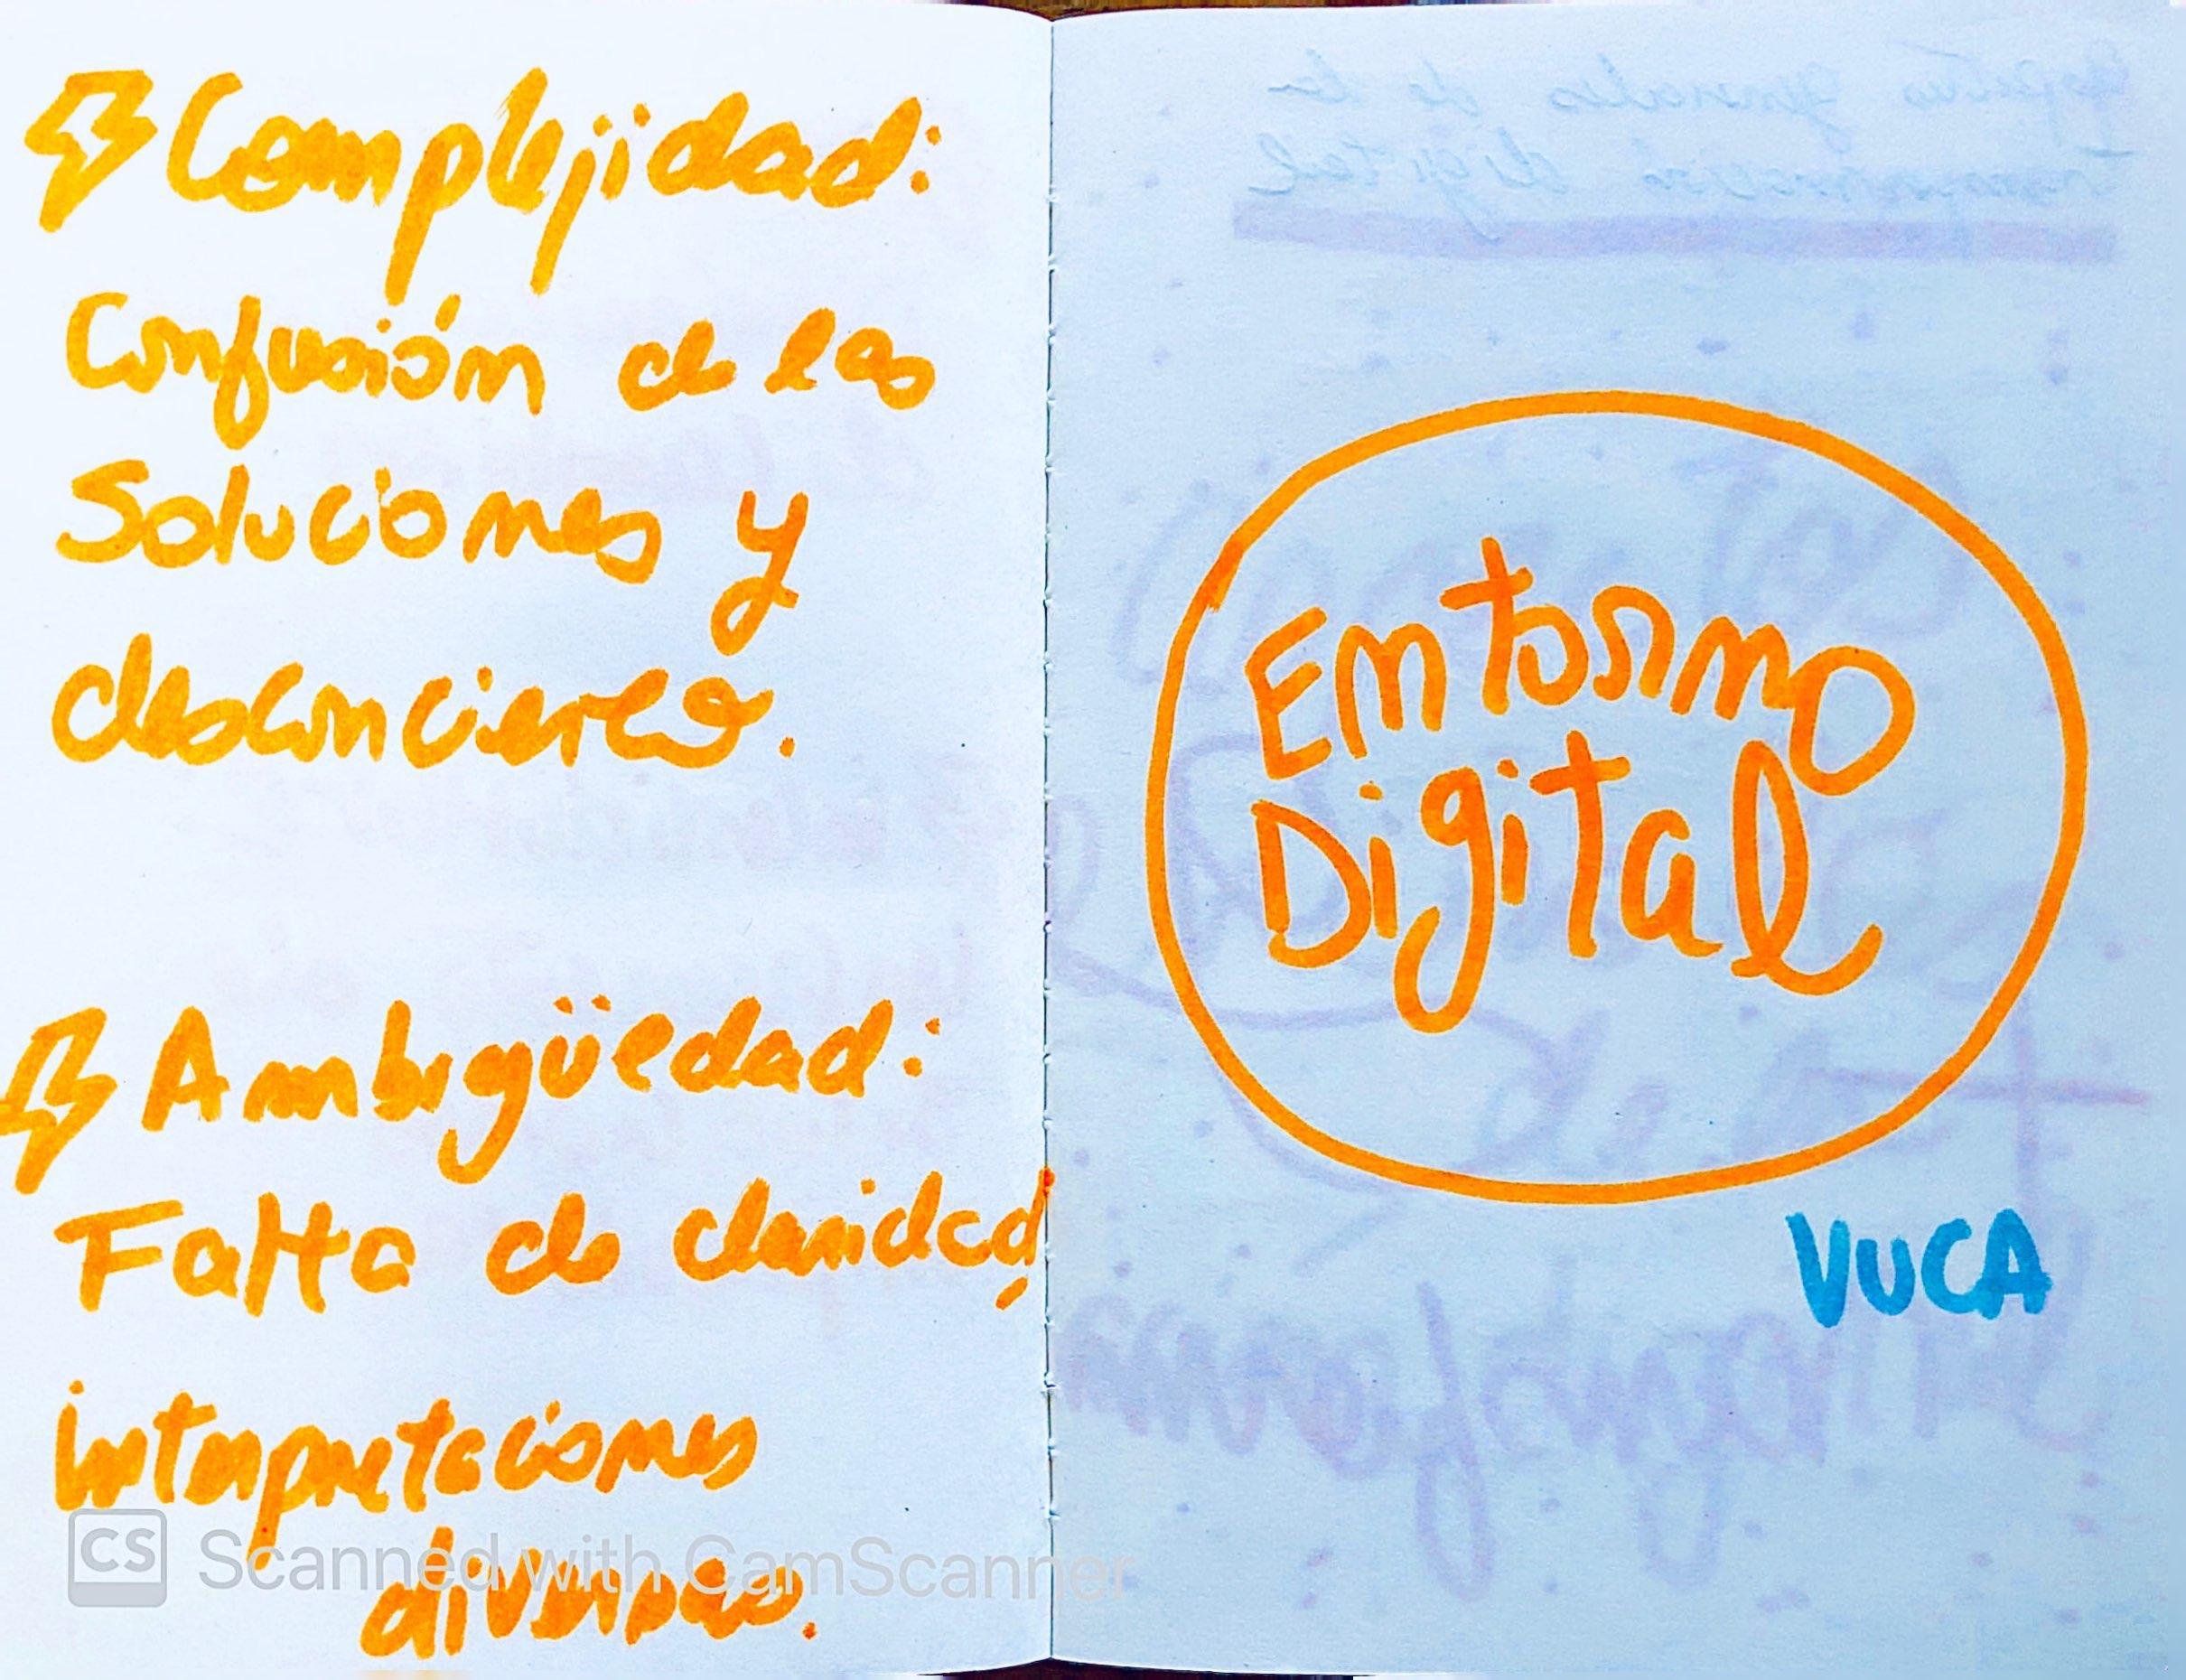 Complejidad:
Confusión de las
Soluciones y
desconcierto.
Ambigüedad:
Falta de claridad,
interpretaciones
diversas.
Entorno
Digital
VUCA
CS Scanned with CamScanner